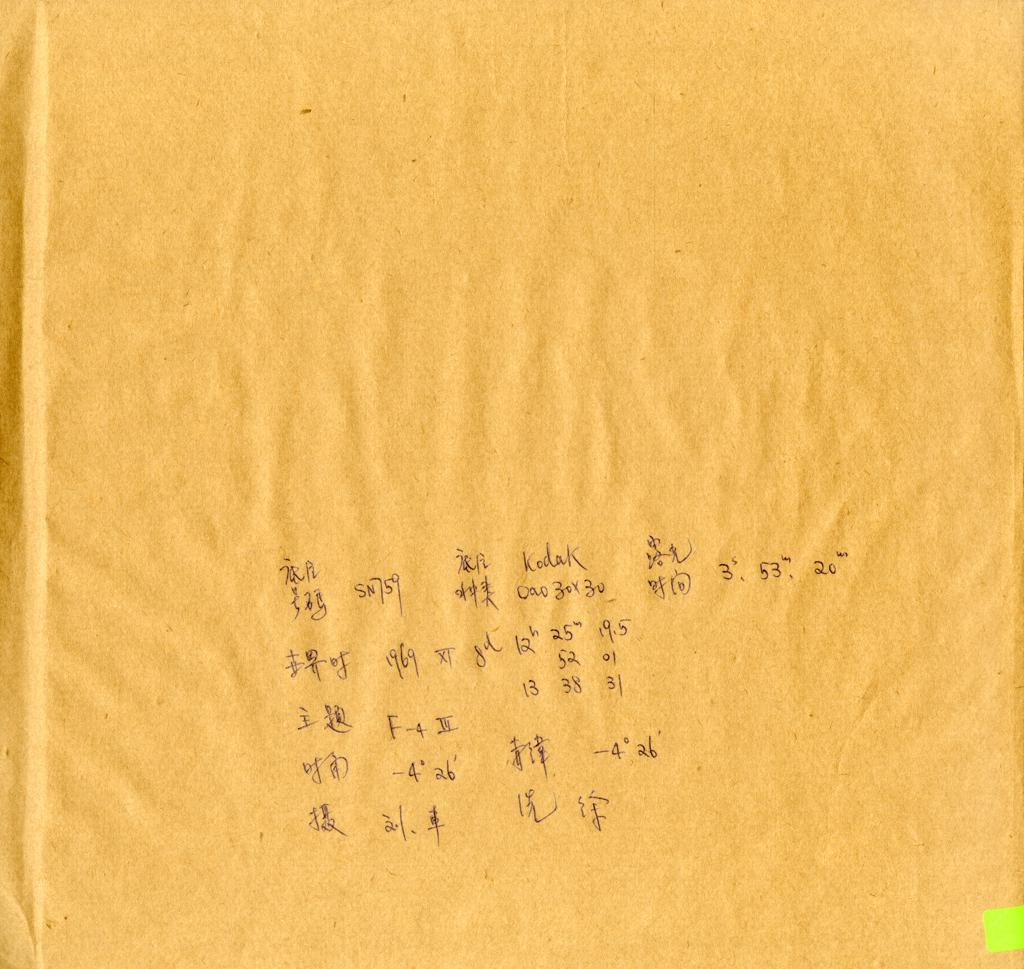 底片号码 SN759 底片种类 Kodak Oao 30×30 露光时间 3ˢ. 53ᵐ. 20ᵐ
世界时 1969 XI 8ᵈ 12ʰ 25ᵐ 19.5
52 01
13 38 31
主题 F-4 III
时角 -4° 26′ 赤纬 -4° 26′
摄 刘. 車 洗 徐